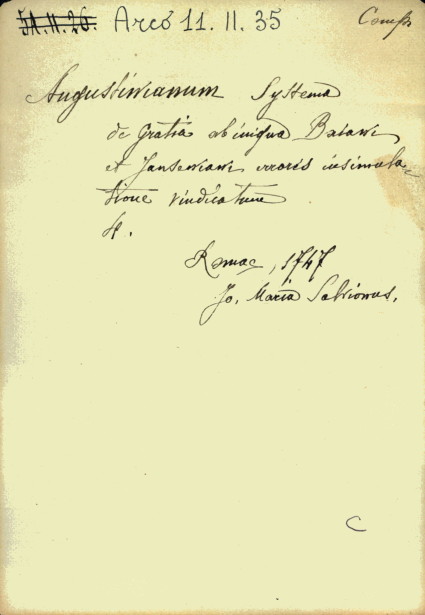 51.11.26. Arcó 11.11.35
Augustinianum Systema
de Gratia ab iniqua Baiani
et Janseniani erroris insimula-
tione vindicatum
4.
Romae, 1747
Jo. Maria Salvionus.
C